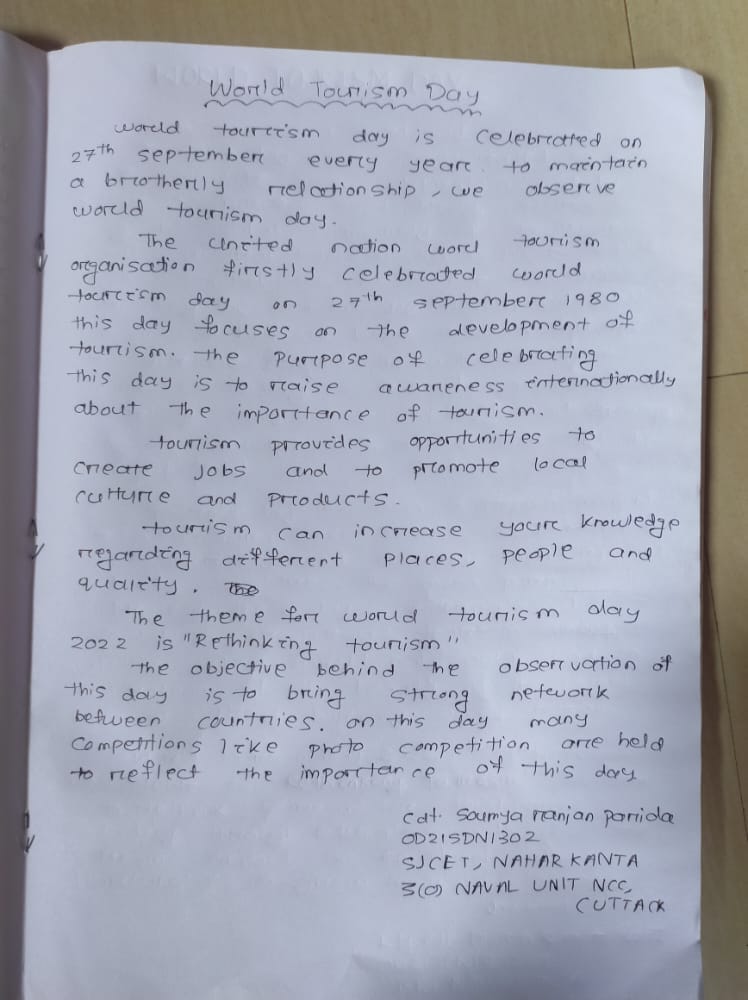 World Tourism Day
World tourism day is celebrated on
27th september every year. to maintain
a brotherly relationship, we observe
world tourism day.
The united nation word tourism
organisation firstly celebrated world
tourism day on 27th september 1980
this day focuses on the development of
tourism. the purpose of celebrating
this day is to raise awareness internationally
about the importance of tourism.
tourism provides opportunities to
create jobs and to promote local
culture and products.
tourism can increase your knowledge
regarding different places, people and
quality. The
The theme for world tourism day
2022 is "Rethinking tourism"
the objective behind the observation of
this day is to bring strong network
between countries. on this day many
competitions like photo competition are held
to reflect the importance of this day
cdt. Soumya ranjan parida
OD21SDN1302
SJCET, NAHARKANTA
3(O) NAVAL UNIT NCC,
CUTTACK